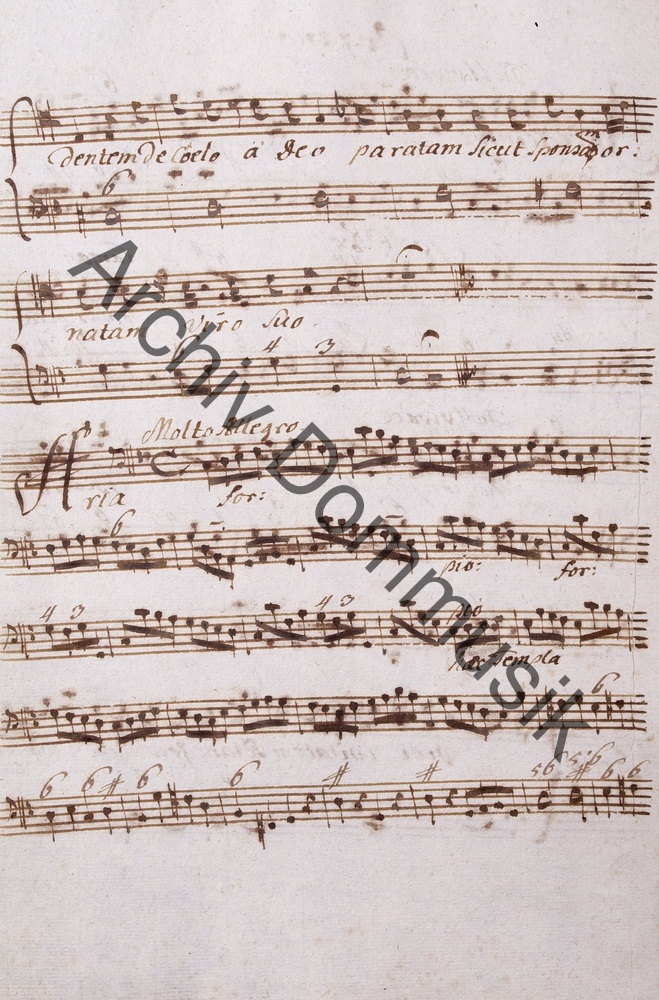 dentem de Coelo a Deo paratam sicut sponsam or:
6
natam Viro suo
6 4 3
Molto Allegro
Aria for:
6
pio: for:
4 3 4 3 pio
haec templa
6
6 6 # 6 6 # # 56 5 6 # 6 6
Archiv Dommusik